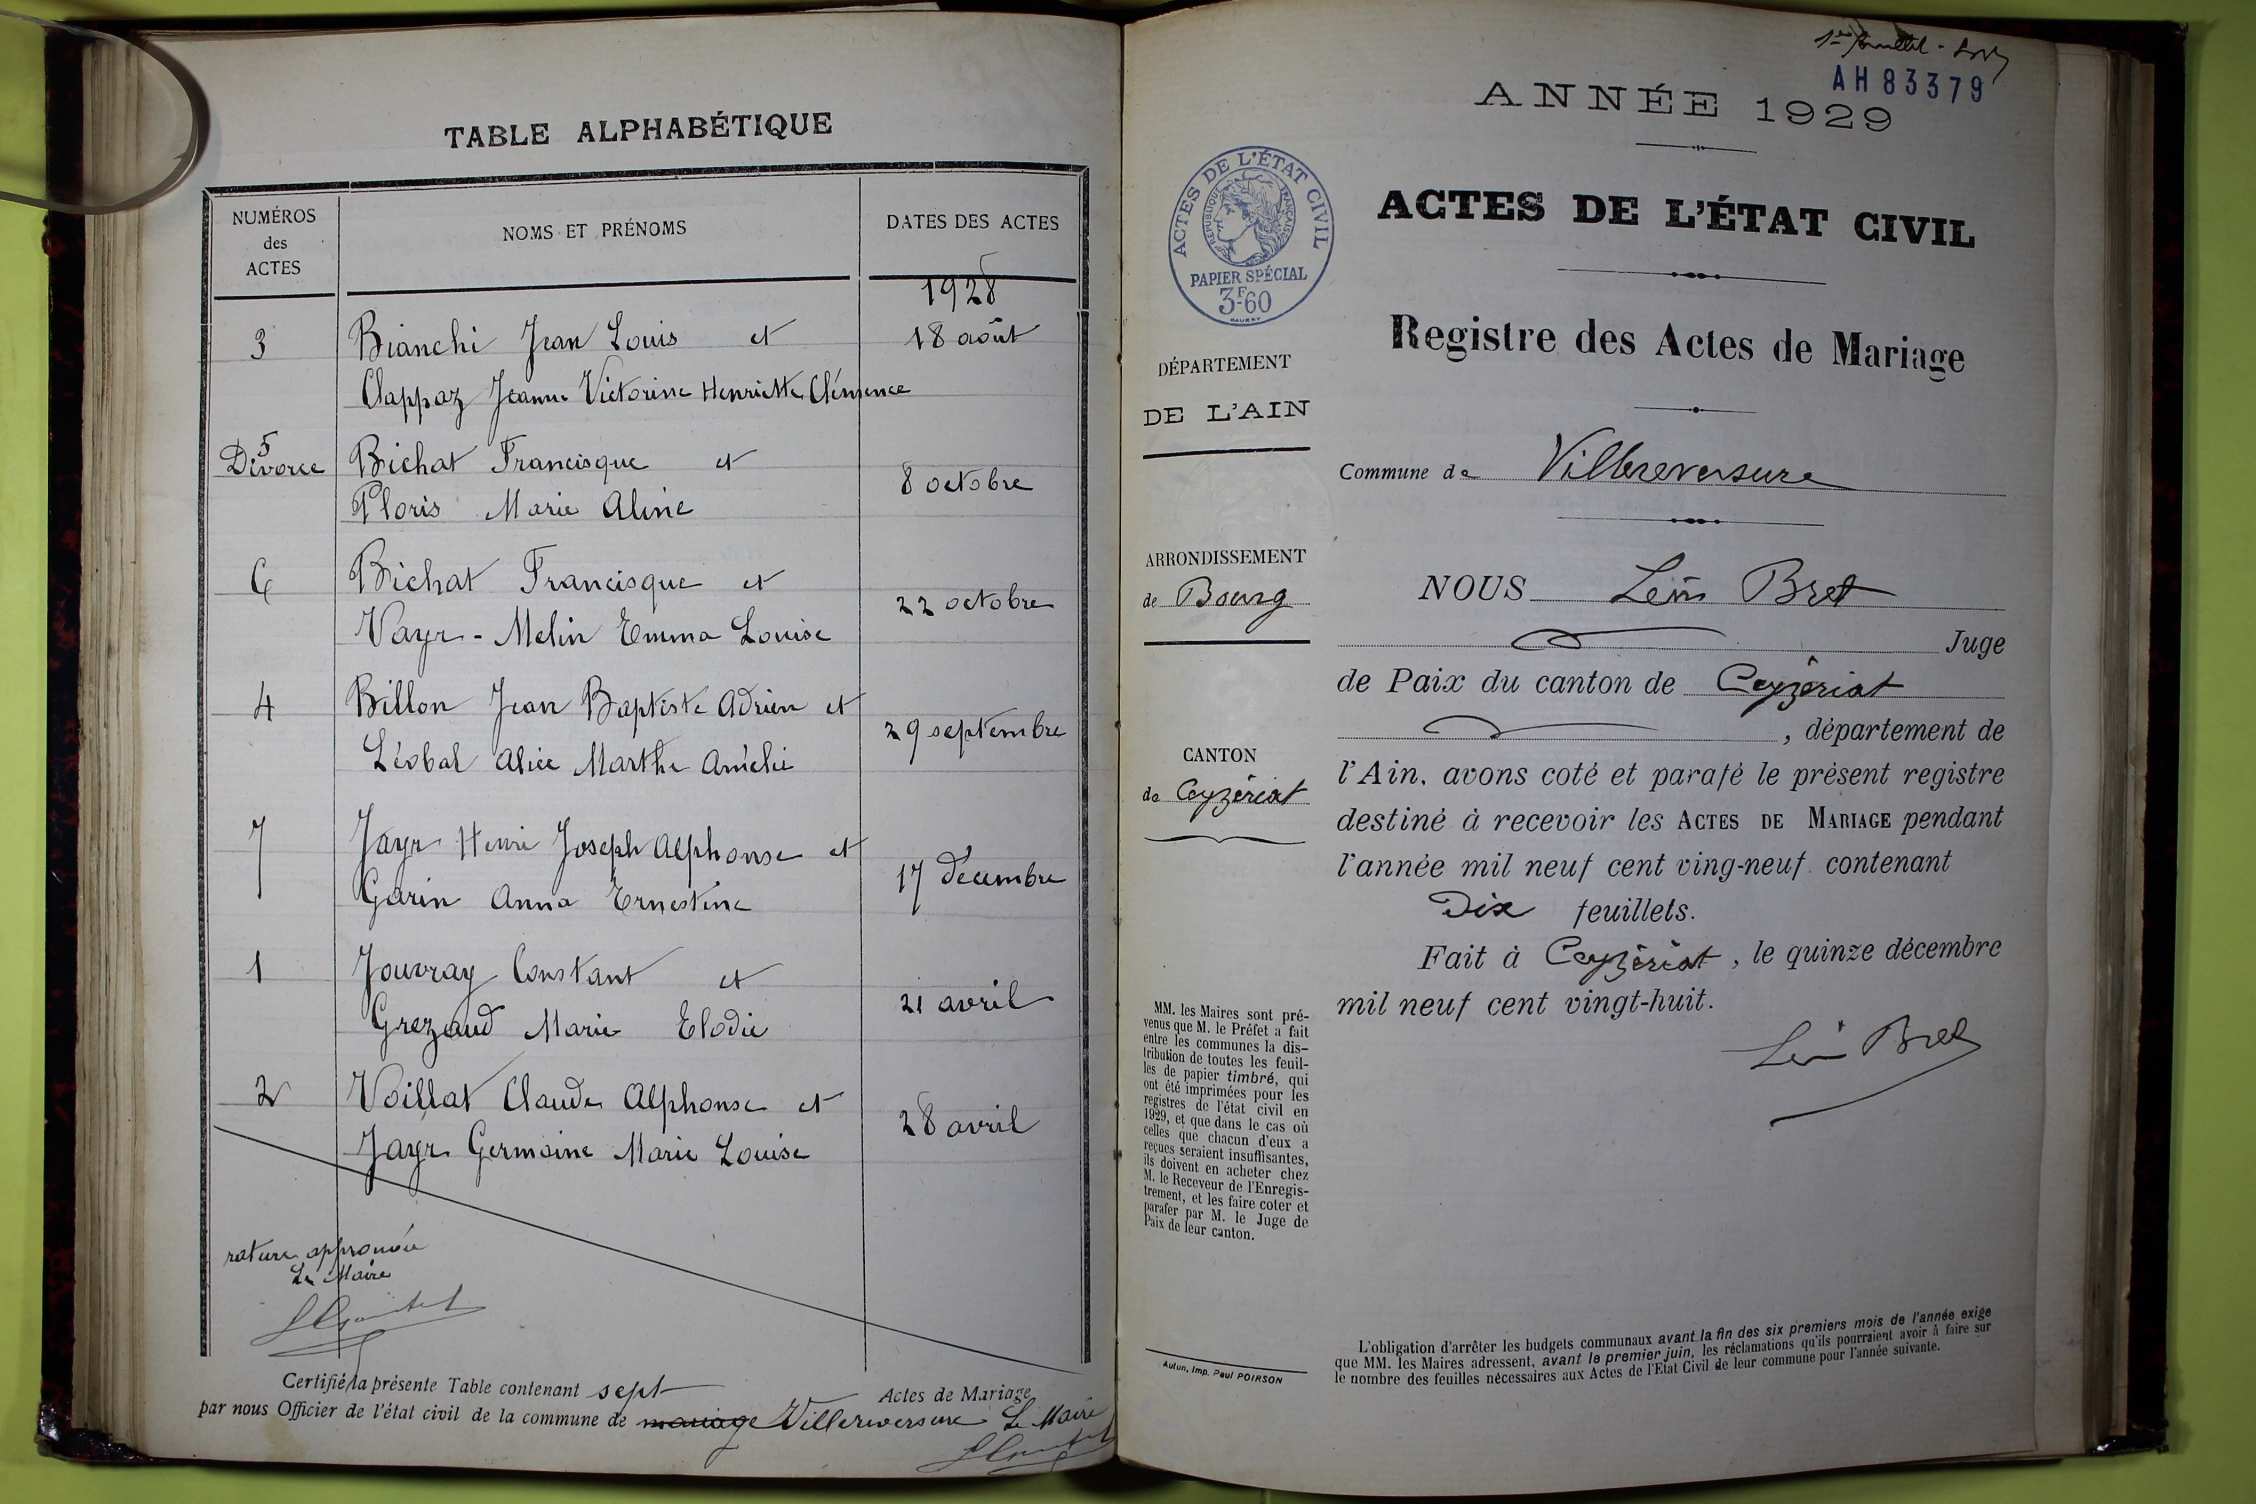 TABLE ALPHABÉTIQUE
NUMÉROS
des
ACTES
NOMS ET PRÉNOMS
DATES DES ACTES
1928
3
Bianchi Jean Louis et
18 août
Clappaz Jeanne Victorine Henriette Clémence
5
Divorce
Bichat Francisque et
8 octobre
Ploris Marie Aline
6
Bichat Francisque et
22 octobre
Vayr-Melin Emma Louise
4
Billon Jean Baptiste Adrien et
29 septembre
Léobal Alice Marthe Amélie
7
Jayr Henri Joseph Alphonse et
17 décembre
Garin Anna Ernestine
1
Jouvray Constant et
21 avril
Grezaud Marie Elodie
2
Voillat Claude Alphonse et
28 avril
Jayr Germaine Marie Louise
rature approuvée
Le Maire
Certifié la présente Table contenant sept Actes de Mariage
par nous Officier de l'état civil de la commune de mariage Villereversure Le Maire
AH83379
ANNÉE 1929
ACTES DE L'ÉTAT CIVIL
RÉPUBLIQUE FRANÇAISE
PAPIER SPÉCIAL
3F-60
ACTES DE L'ÉTAT CIVIL
Registre des Actes de Mariage
DÉPARTEMENT
DE L'AIN
Commune de Villereversure
ARRONDISSEMENT
de Bourg
CANTON
de Ceyzériat
NOUS Léon Bret
Juge
de Paix du canton de Ceyzériat
, département de
l'Ain, avons coté et parafé le présent registre
destiné à recevoir les ACTES DE MARIAGE pendant
l'année mil neuf cent ving-neuf contenant
Dix feuillets.
Fait à Ceyzériat, le quinze décembre
mil neuf cent vingt-huit.
Léon Bret
MM. les Maires sont pré-
venus que M. le Préfet a fait
entre les communes la dis-
tribution de toutes les feuil-
les de papier timbré, qui
ont été imprimées pour les
registres de l'état civil en
1929, et que dans le cas où
celles que chacun d'eux a
reçues seraient insuffisantes,
ils doivent en acheter chez
M. le Receveur de l'Enregis-
trement, et les faire coter et
parafer par M. le Juge de
Paix de leur canton.
Autun, Imp. Paul POIRSON
L'obligation d'arrêter les budgets communaux avant la fin des six premiers mois de l'année exige
que MM. les Maires adressent, avant le premier juin, les réclamations qu'ils pourraient avoir à faire sur
le nombre des feuilles nécessaires aux Actes de l'Etat Civil de leur commune pour l'année suivante.